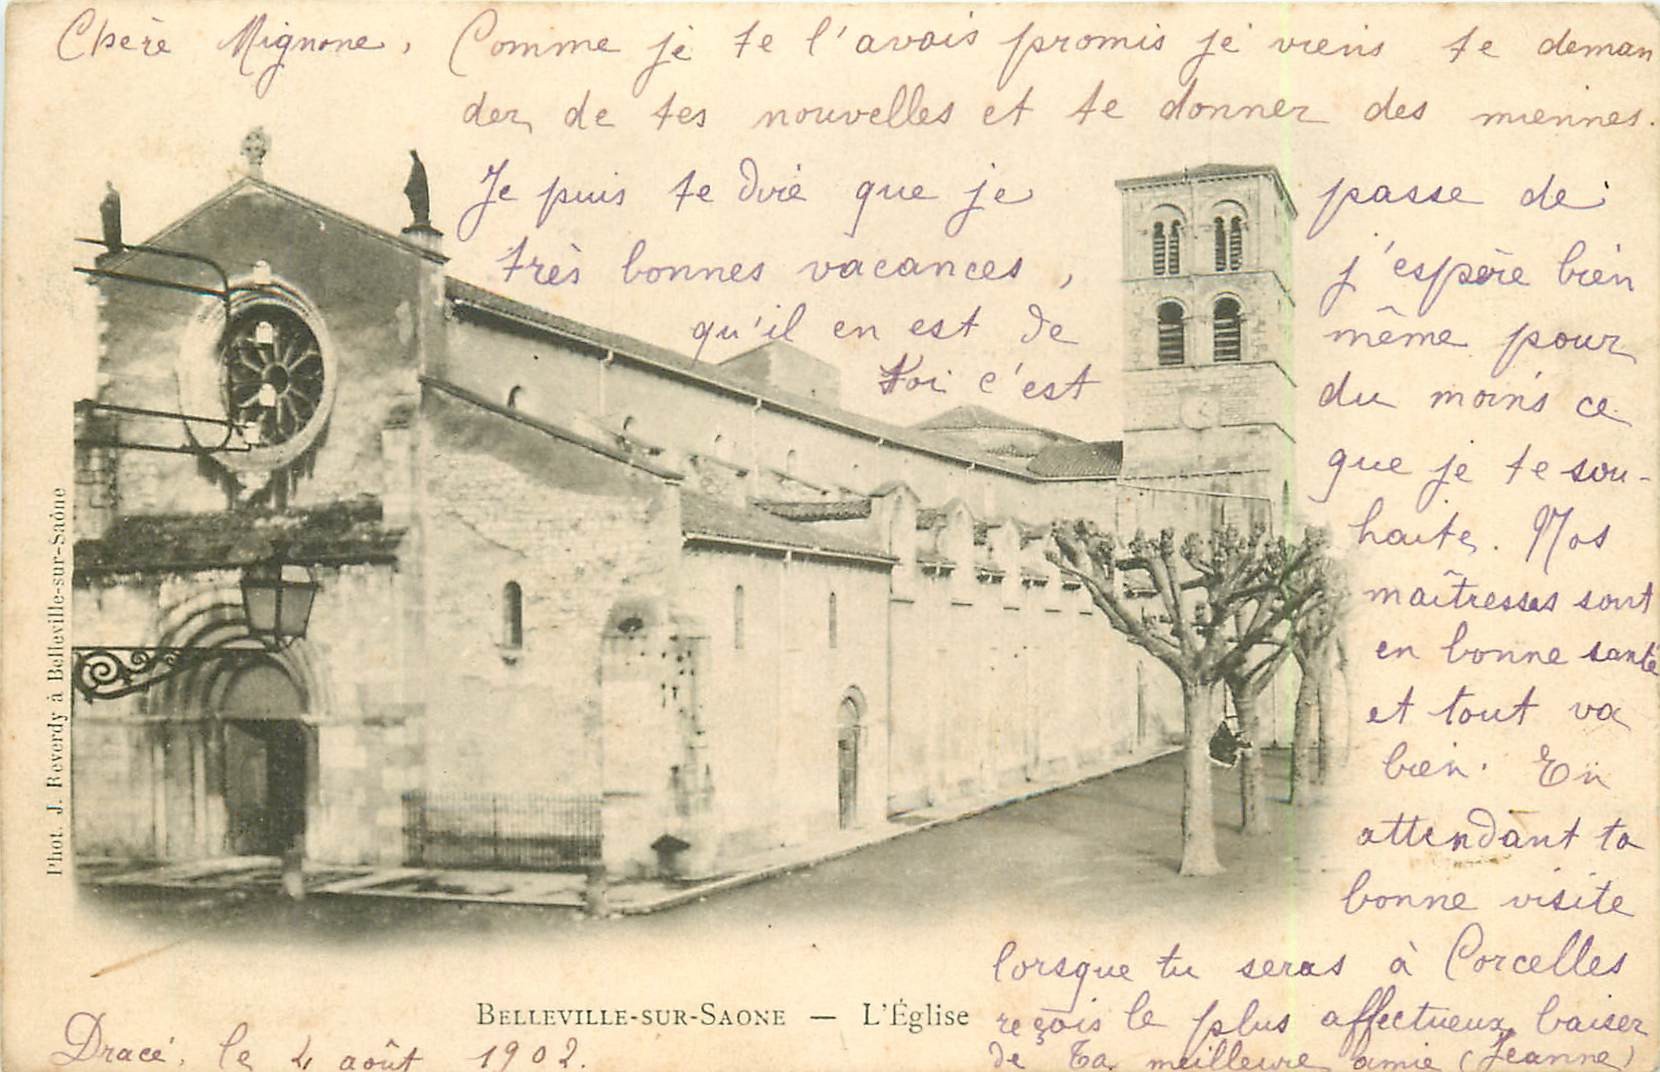 Chère Mignone, Comme je te l'avais promis je viens te deman
der de tes nouvelles et te donner des miennes.
Je puis te dire que je passe de
très bonnes vacances, j'espère bien
qu'il en est de même pour
toi c'est du moins ce
que je te sou-
haite. Nos
maîtresses sont
en bonne santé
et tout va
bien. En
attendant ta
bonne visite
lorsque tu seras à Corcelles
reçois le plus affectueux baiser
de ta meilleure amie (Jeanne)
Dracé, le 4 août 1902.
BELLEVILLE-SUR-SAONE — L'Église
Phot. J. Reverdy à Belleville-sur-Saône